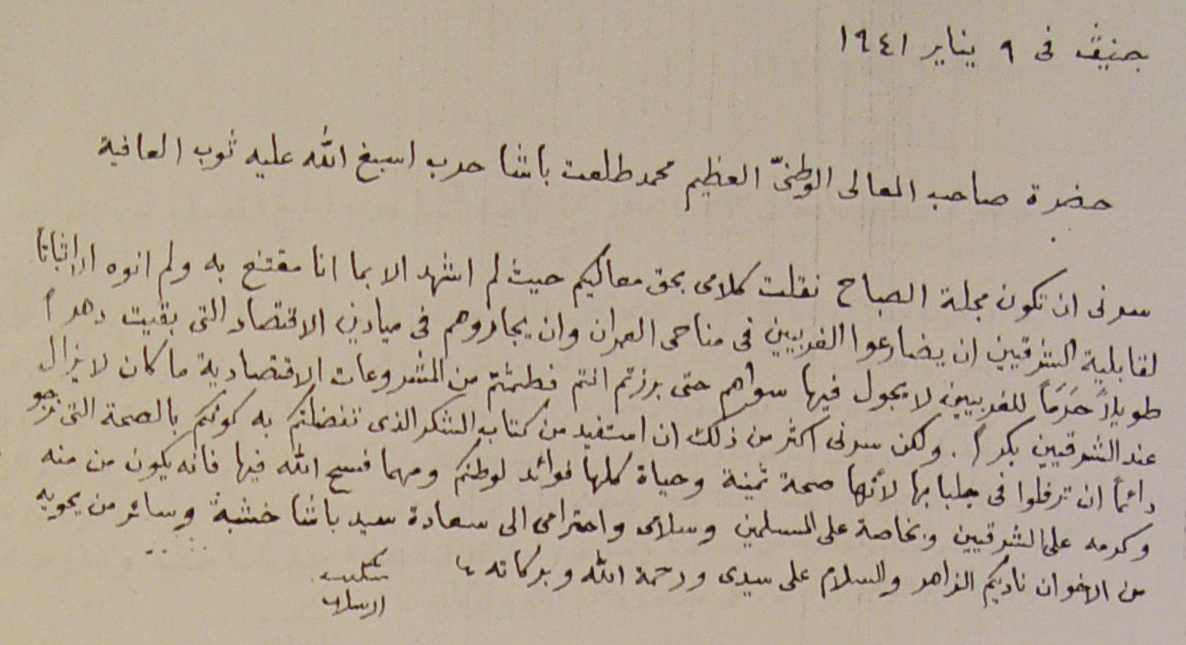 جنيف فى ٩ يناير ١٩٤١
حضرة صاحب المعالى الوطنىّ العظيم محمد طلعت باشا حرب اسبغ الله عليه ثوب العافية
سرنى ان تكون مجلة الصباح نقلت كلامى بحق معاليكم حيث لم اشهد الا بما انا مقتنع به ولم انوه الا اثباتاً
لقابلية الشرقيين ان يضارعوا الغربيين فى مناحى العمران وان يجاروهم فى ميادين الاقتصاد التى بقيت دهراً
طويلاً حَرَماً للغربيين لا يجول فيها سواهم حتى برزتم انتم فطمثتم من المشروعات الاقتصادية ما كان لا يزال
عند الشرقيين بكراً. ولكن سرنى اكثر من ذلك ان استفيد من كتاب الشكر الذى تفضلتم به كونكم بالصحة التى نرجو
دائماً ان ترفلوا فى جلبابها لأنها صحة ثمينة وحياة كلها فوائد لوطنكم ومهما فسح الله فيها فانه يكون من منه
وكرمه على الشرقيين وبخاصة على المسلمين وسلامى واحترامى الى سعادة سيد باشا خشبة وسائر من يحويه
من الاخوان ناديكم الزاهر والسلام على سيدى ورحمة الله وبركاته
شكيب
ارسلان